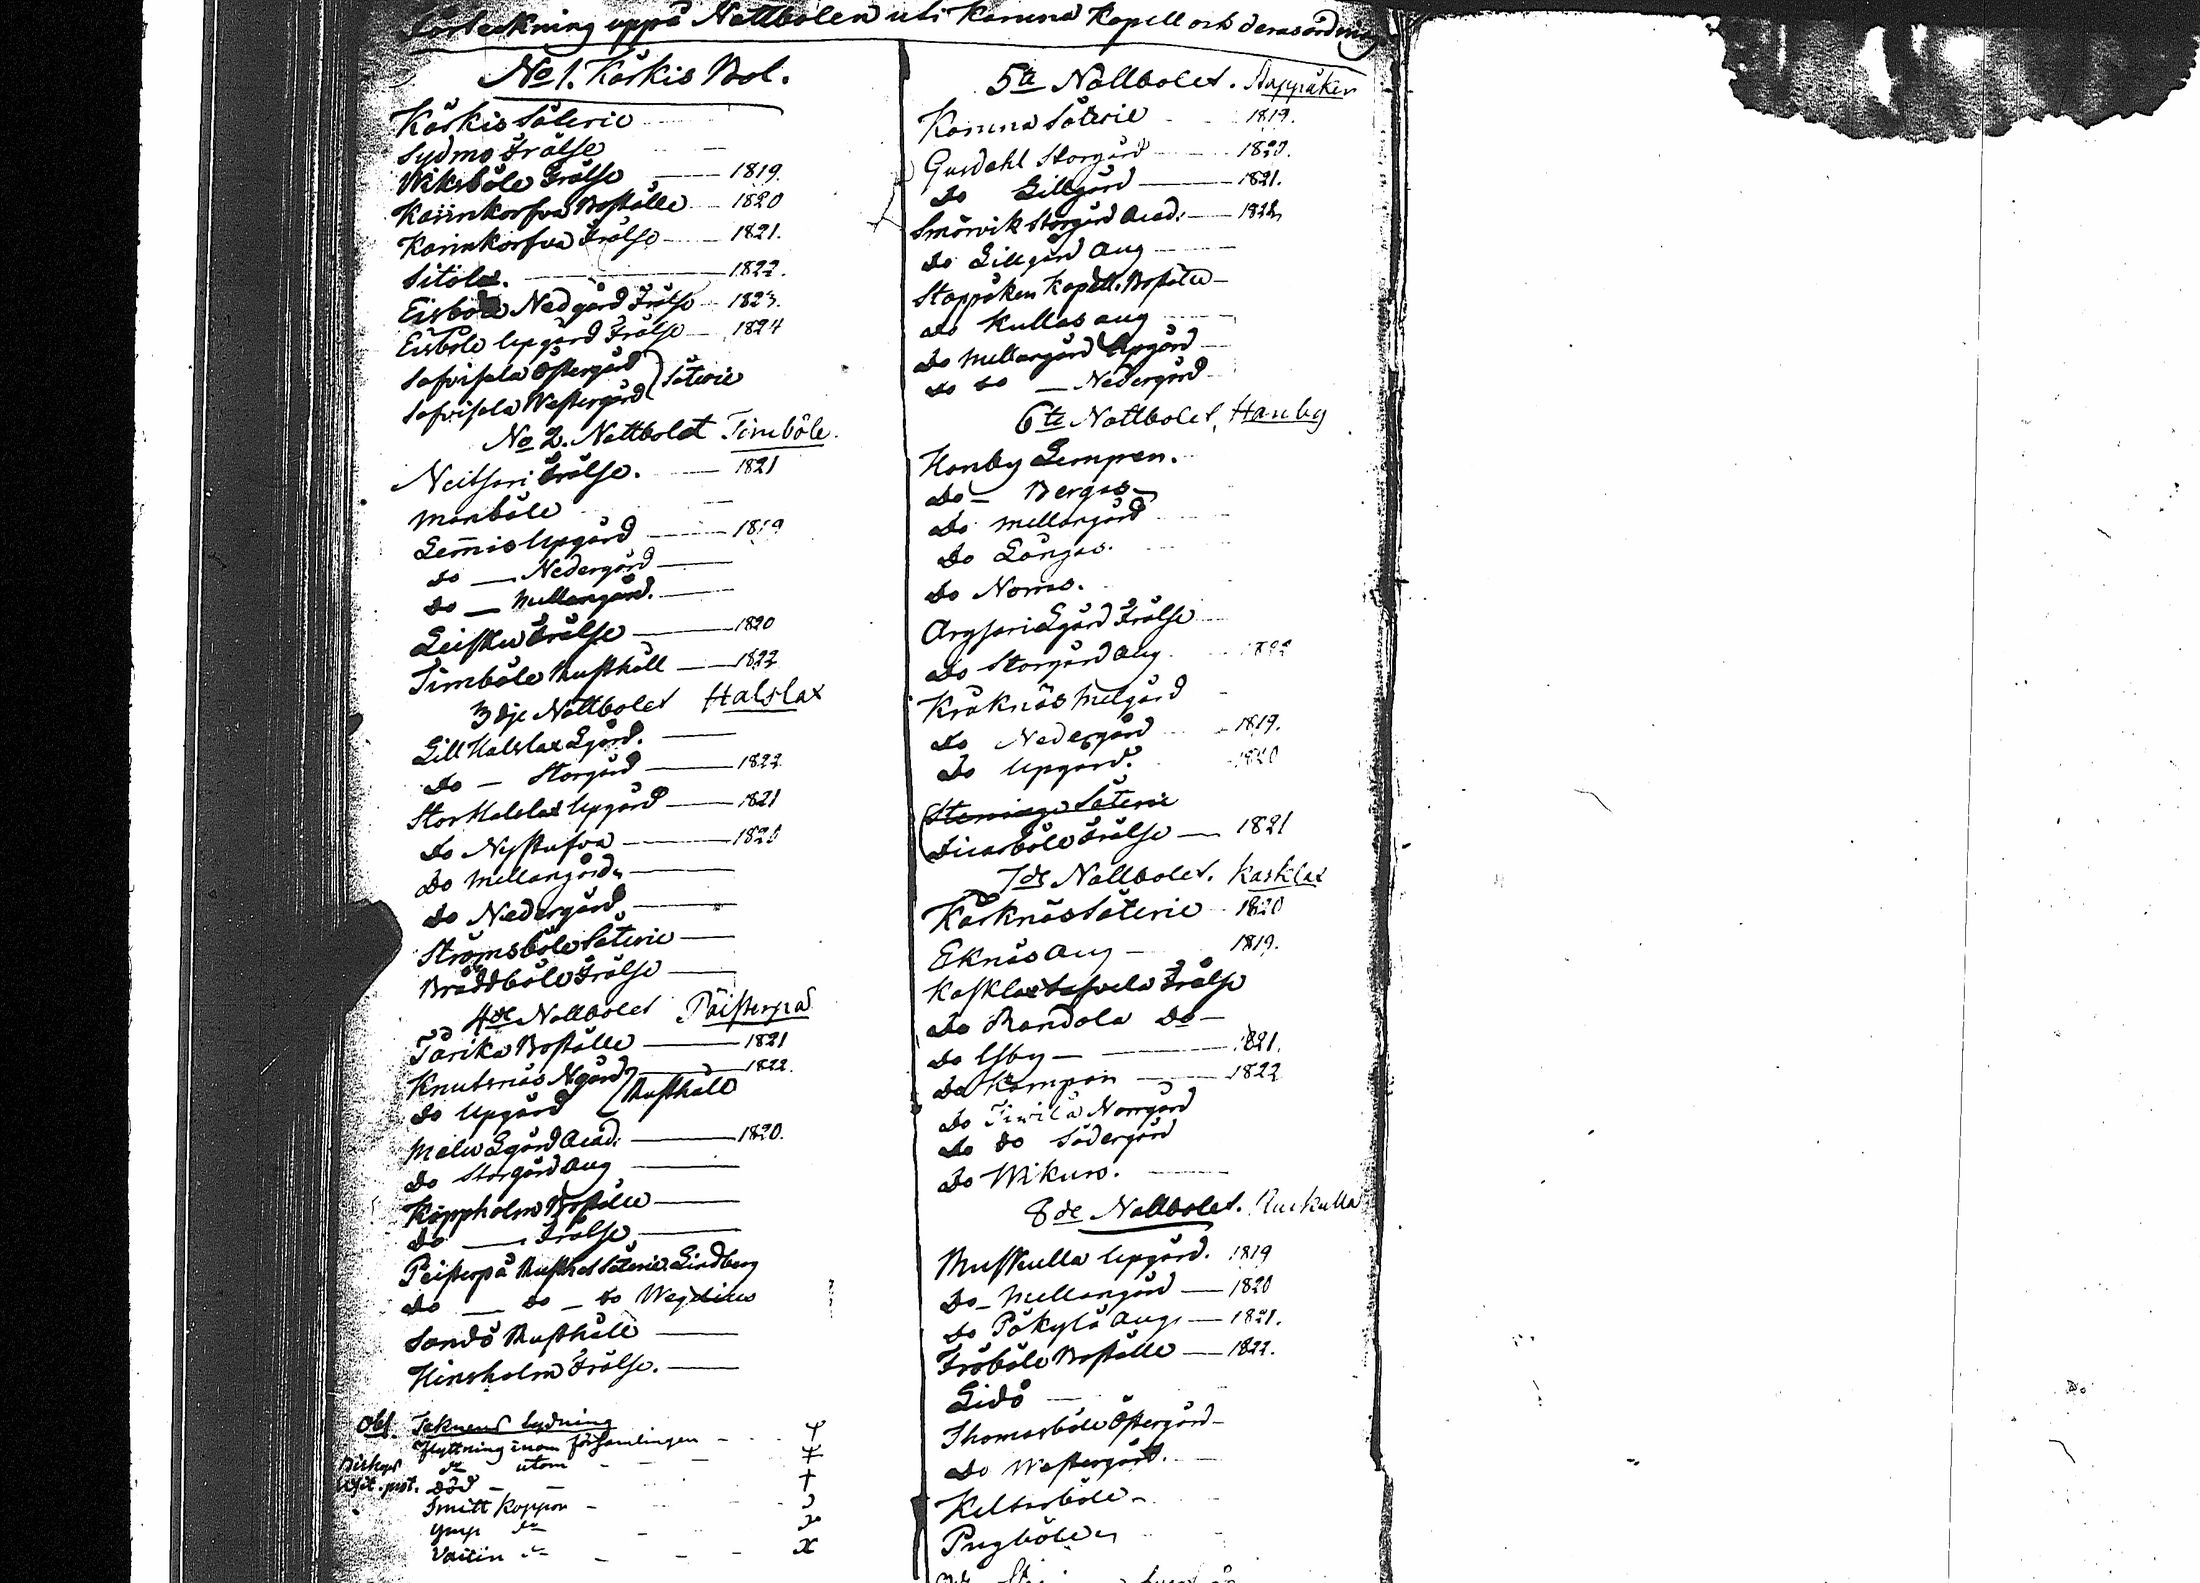 Förteckning uppå Nattbolen uti Karuna Kapell och deras ordning
No 1. Kärkis Bol.
Kärkis Säterie
Sydmo Frälse
Wiksböle Frälse 1819.
Karinkorfva Boställe 1820
Karinkorfva Frälse 1821.
Sitola. 1822.
Eisböle Nedgård Frälse 1823.
Eisböle Upgård Frälse 1824
Safvisala Östergård
Safvisala Westergård Säterie
No 2. Nattbolet Timböle.
Neitsari Frälse. 1821
Manböle
Lemis Upgård 1819
do Nedergård
do Mellangård.
Leisku Frälse 1820
Timböle Rusthåll 1822
3dje Nattbolet Halslax
Lill Halslax Lgård.
do Storgård 1822
Stor Halslax Upgård 1821
do Nystufva 1820
do Mellangård
do Nedergård
Strömsböle Säterie
Bräddböle Frälse
4de Nattbolet Päisterpä
Tärika Boställe 1821
Knutsnäs Ngård 1822.
do Upgård Rusthåll
Malu Lgård Acad: 1820.
do Storgård Aug
Käppholm Boställe
do Frälse
Peisterpä Rusth Säterie Lindberg
do do do Wegelius
Sandö Rusthåll
Hinsholm Frälse.
Obs. Teknens lydning
Flyttning inom församlingen
do utom
Biskops
Visit. prot. död
Smitt Koppor
Ymp do
Vaccin do
5te Nattbolet. Stappåker
Karuna Säterie 1819.
Gusdahl Storgård 1820.
do Lillgård 1821.
Smörvik Storgård Acad: 1822
do Lillgård Aug
Stappåken Kapell. Boställe
do Kullas Aug
do Mellangård Upgård
do do Nedergård
6te Nattbolet, Hanby
Hanby Lempen.
do Bergas
do Mellangård
do Långas.
do Noms.
Argsari Lgård Frälse
do Storgård Aug. 1822
Kråknäs Melgård
do Nedergård 1819.
do Upgård. 1820
Steninge Säterie
Dicarböle Frälse 1821
7de Nattbolet. Kasklax
Karknäs Säterie 1820
Eknäs Aug 1819.
Kasklax Frälse
do Randala do
do Usby 1821.
do Kampan 1822
do Norrgård
do do Södergård
do Wikars.
8de Nattbolet. Ruskulla
Ruskulla Upgård. 1819
do Mellangård 1820
do Päkylä Aug. 1821.
Fröböle Boställe 1822.
Lidö
Thomasböle Östergård
do Westergård.
Keltasböle
Pugböle